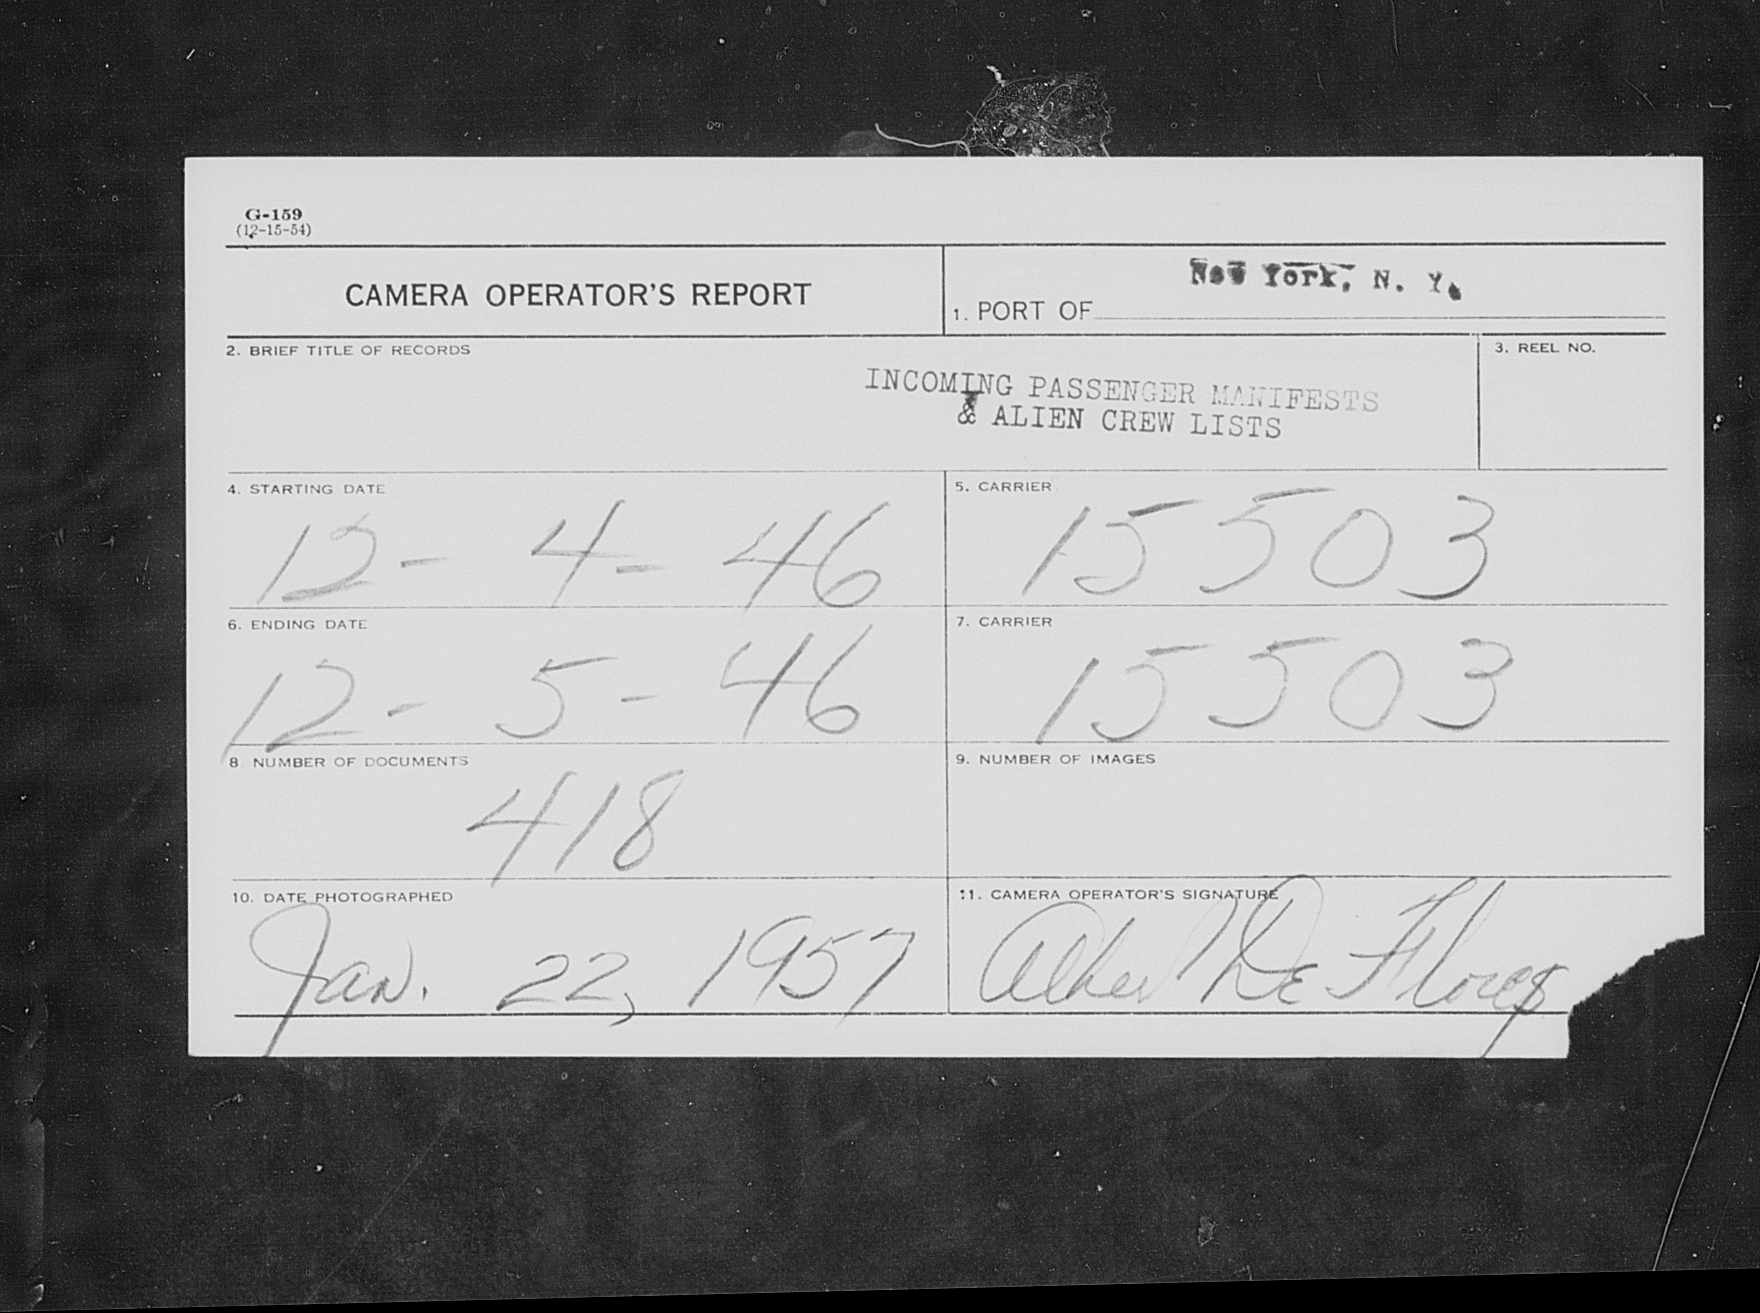 G-159
(12-15-54)
CAMERA OPERATOR'S REPORT
New York, N. Y.
1. PORT OF
2. BRIEF TITLE OF RECORDS
3. REEL NO.
INCOMING PASSENGER MANIFESTS
& ALIEN CREW LISTS
4. STARTING DATE
5. CARRIER
12 - 4 - 46
15503
6. ENDING DATE
7. CARRIER
12 - 5 - 46
15503
8 NUMBER OF DOCUMENTS
9. NUMBER OF IMAGES
418
10. DATE PHOTOGRAPHED
11. CAMERA OPERATOR'S SIGNATURE
Jan. 22, 1957
Albert De Flores